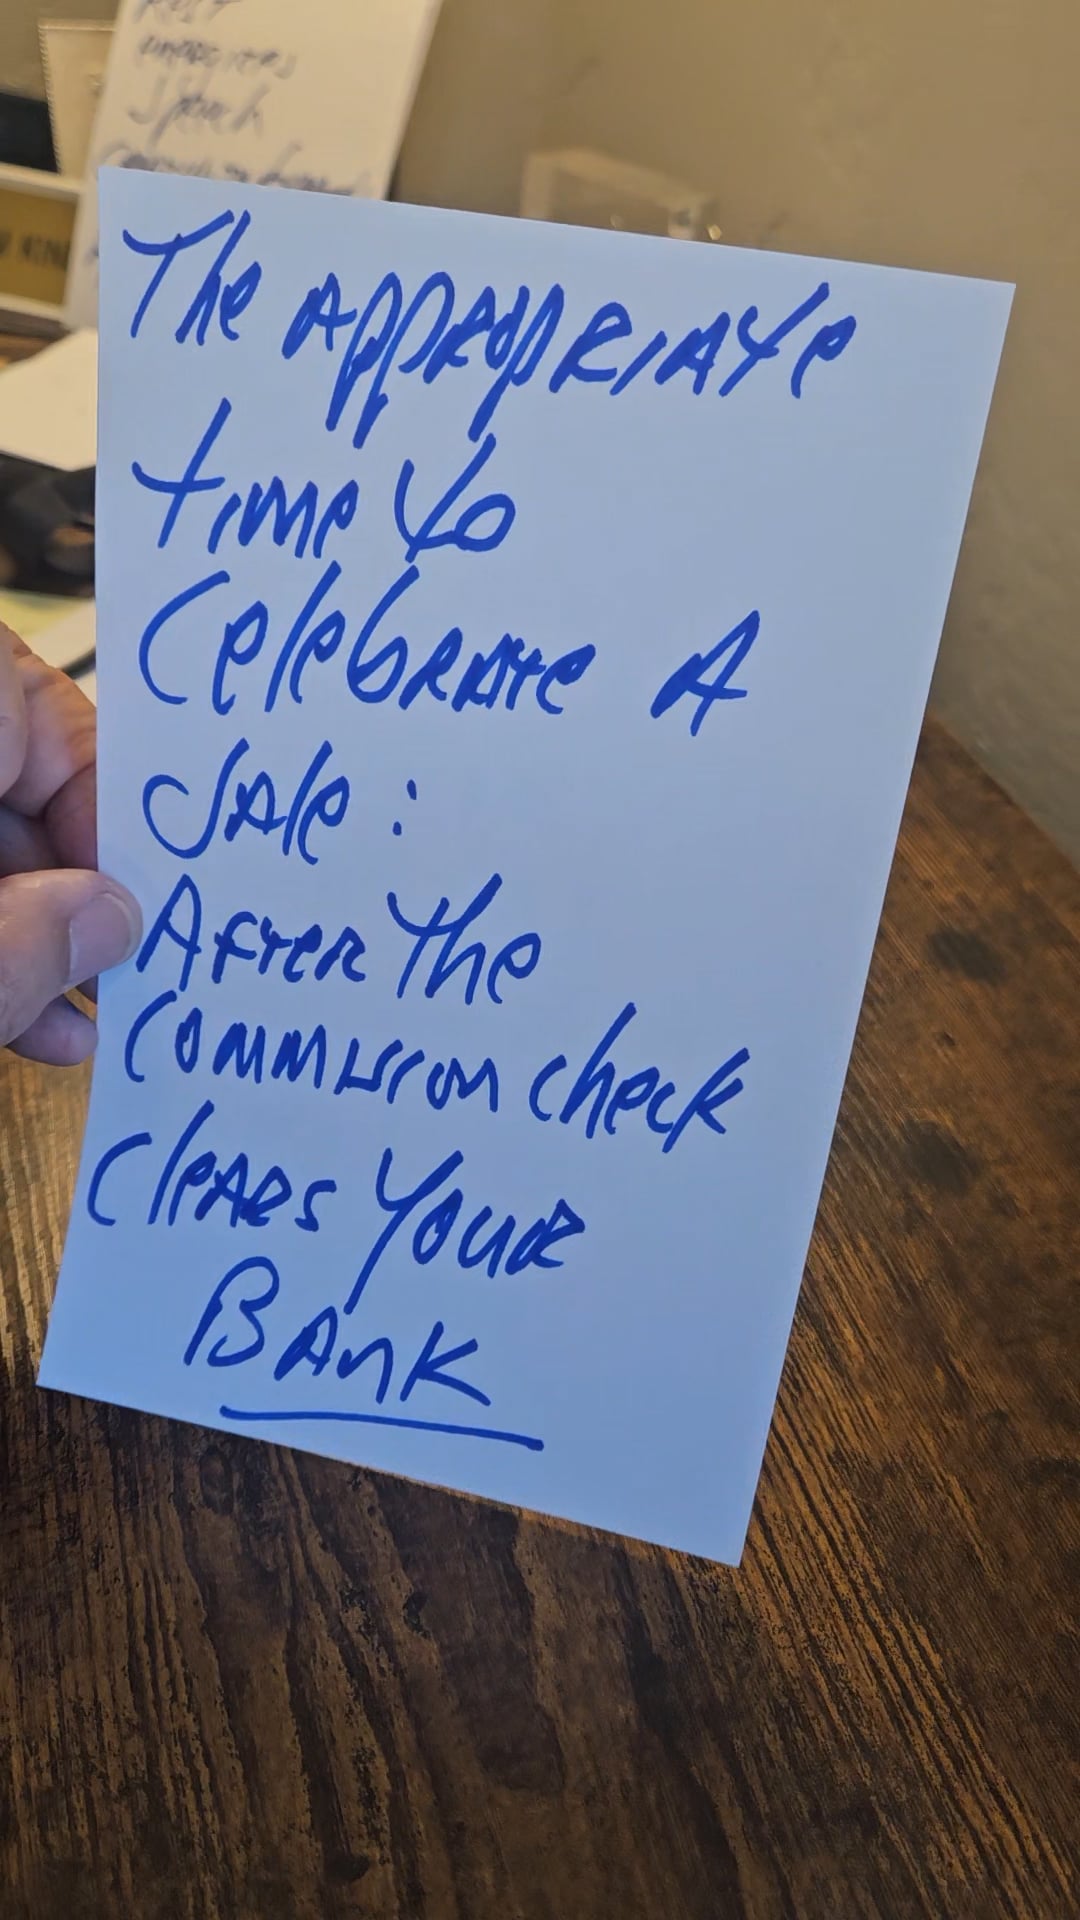 Speech
The appropriate
time to
Celebrate A
Sale:
After the
Commission check
Clears your
Bank